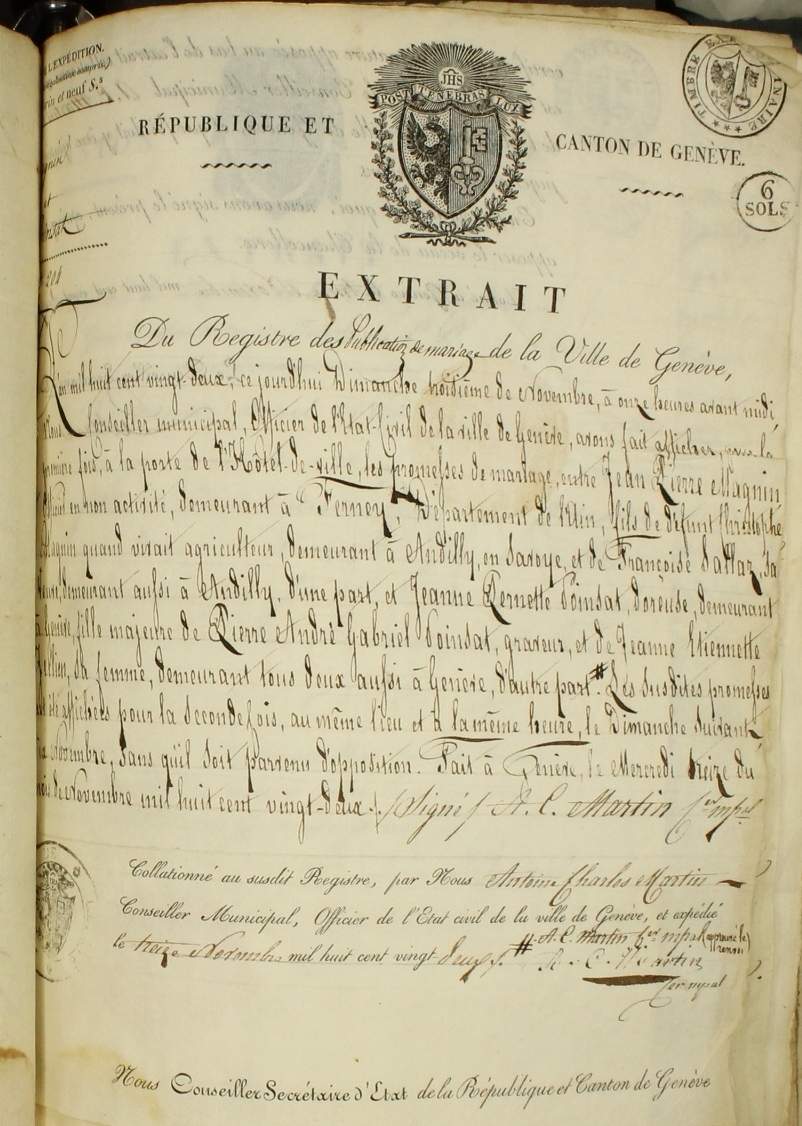 L'EXPÉDITION.
et neuf S.s
JHS
POST TENEBRAS LUX
TIMBRE
RÉPUBLIQUE ET
CANTON DE GENÈVE.
6
SOLS
EXTRAIT
Du Registre des Publication de mariage de la Ville de Genève,
mil huit cent vingt-deux, ce jourd'hui Dimanche troisième de Novembre, à onze heures avant midi
Conseiller municipal, Officier de l'Etat-Civil de la ville de Genève, avons fait afficher, pour la
première fois, à la porte de l'Hôtel-de-ville, les promesses de mariage, entre Jean Pierre Magnin
en non activité, demeurant à Ferney, Département de l'Ain, fils de défunt Christophe
Magnin quand vivait agriculteur, demeurant à Andilly, en Savoye, et de Françoise Sallaz, sa
demeurant aussi à Andilly, d'une part, et Jeanne Pernette Poinsat, doreuse, demeurant
à Genève, fille majeure de Pierre André Gabriel Poinsat, graveur, et de Jeanne Etiennette
sa femme, demeurant tous deux aussi à Genève, d'autre part.# Les susdites promesses
été affichées pour la seconde fois, au même lieu et à la même heure, le Dimanche suivant
Novembre, sans qu'il soit parvenu d'opposition. Fait à Genève, le Mercredi treize du
mois de Novembre mil huit cent vingt-deux. /Signé/ A. C. Martin Cer mpal
Collationné au susdit Registre, par Nous Antoine Charles Martin
Conseiller Municipal, Officier de l'Etat civil de la ville de Genève, et expédié
le treize Novembre mil huit cent vingt deux.
# A. C. Martin Cer mpal (approuvé le renvoi)
A. C. Martin
Cer mpal
Nous Conseiller Secrétaire d'Etat de la République et Canton de Genève